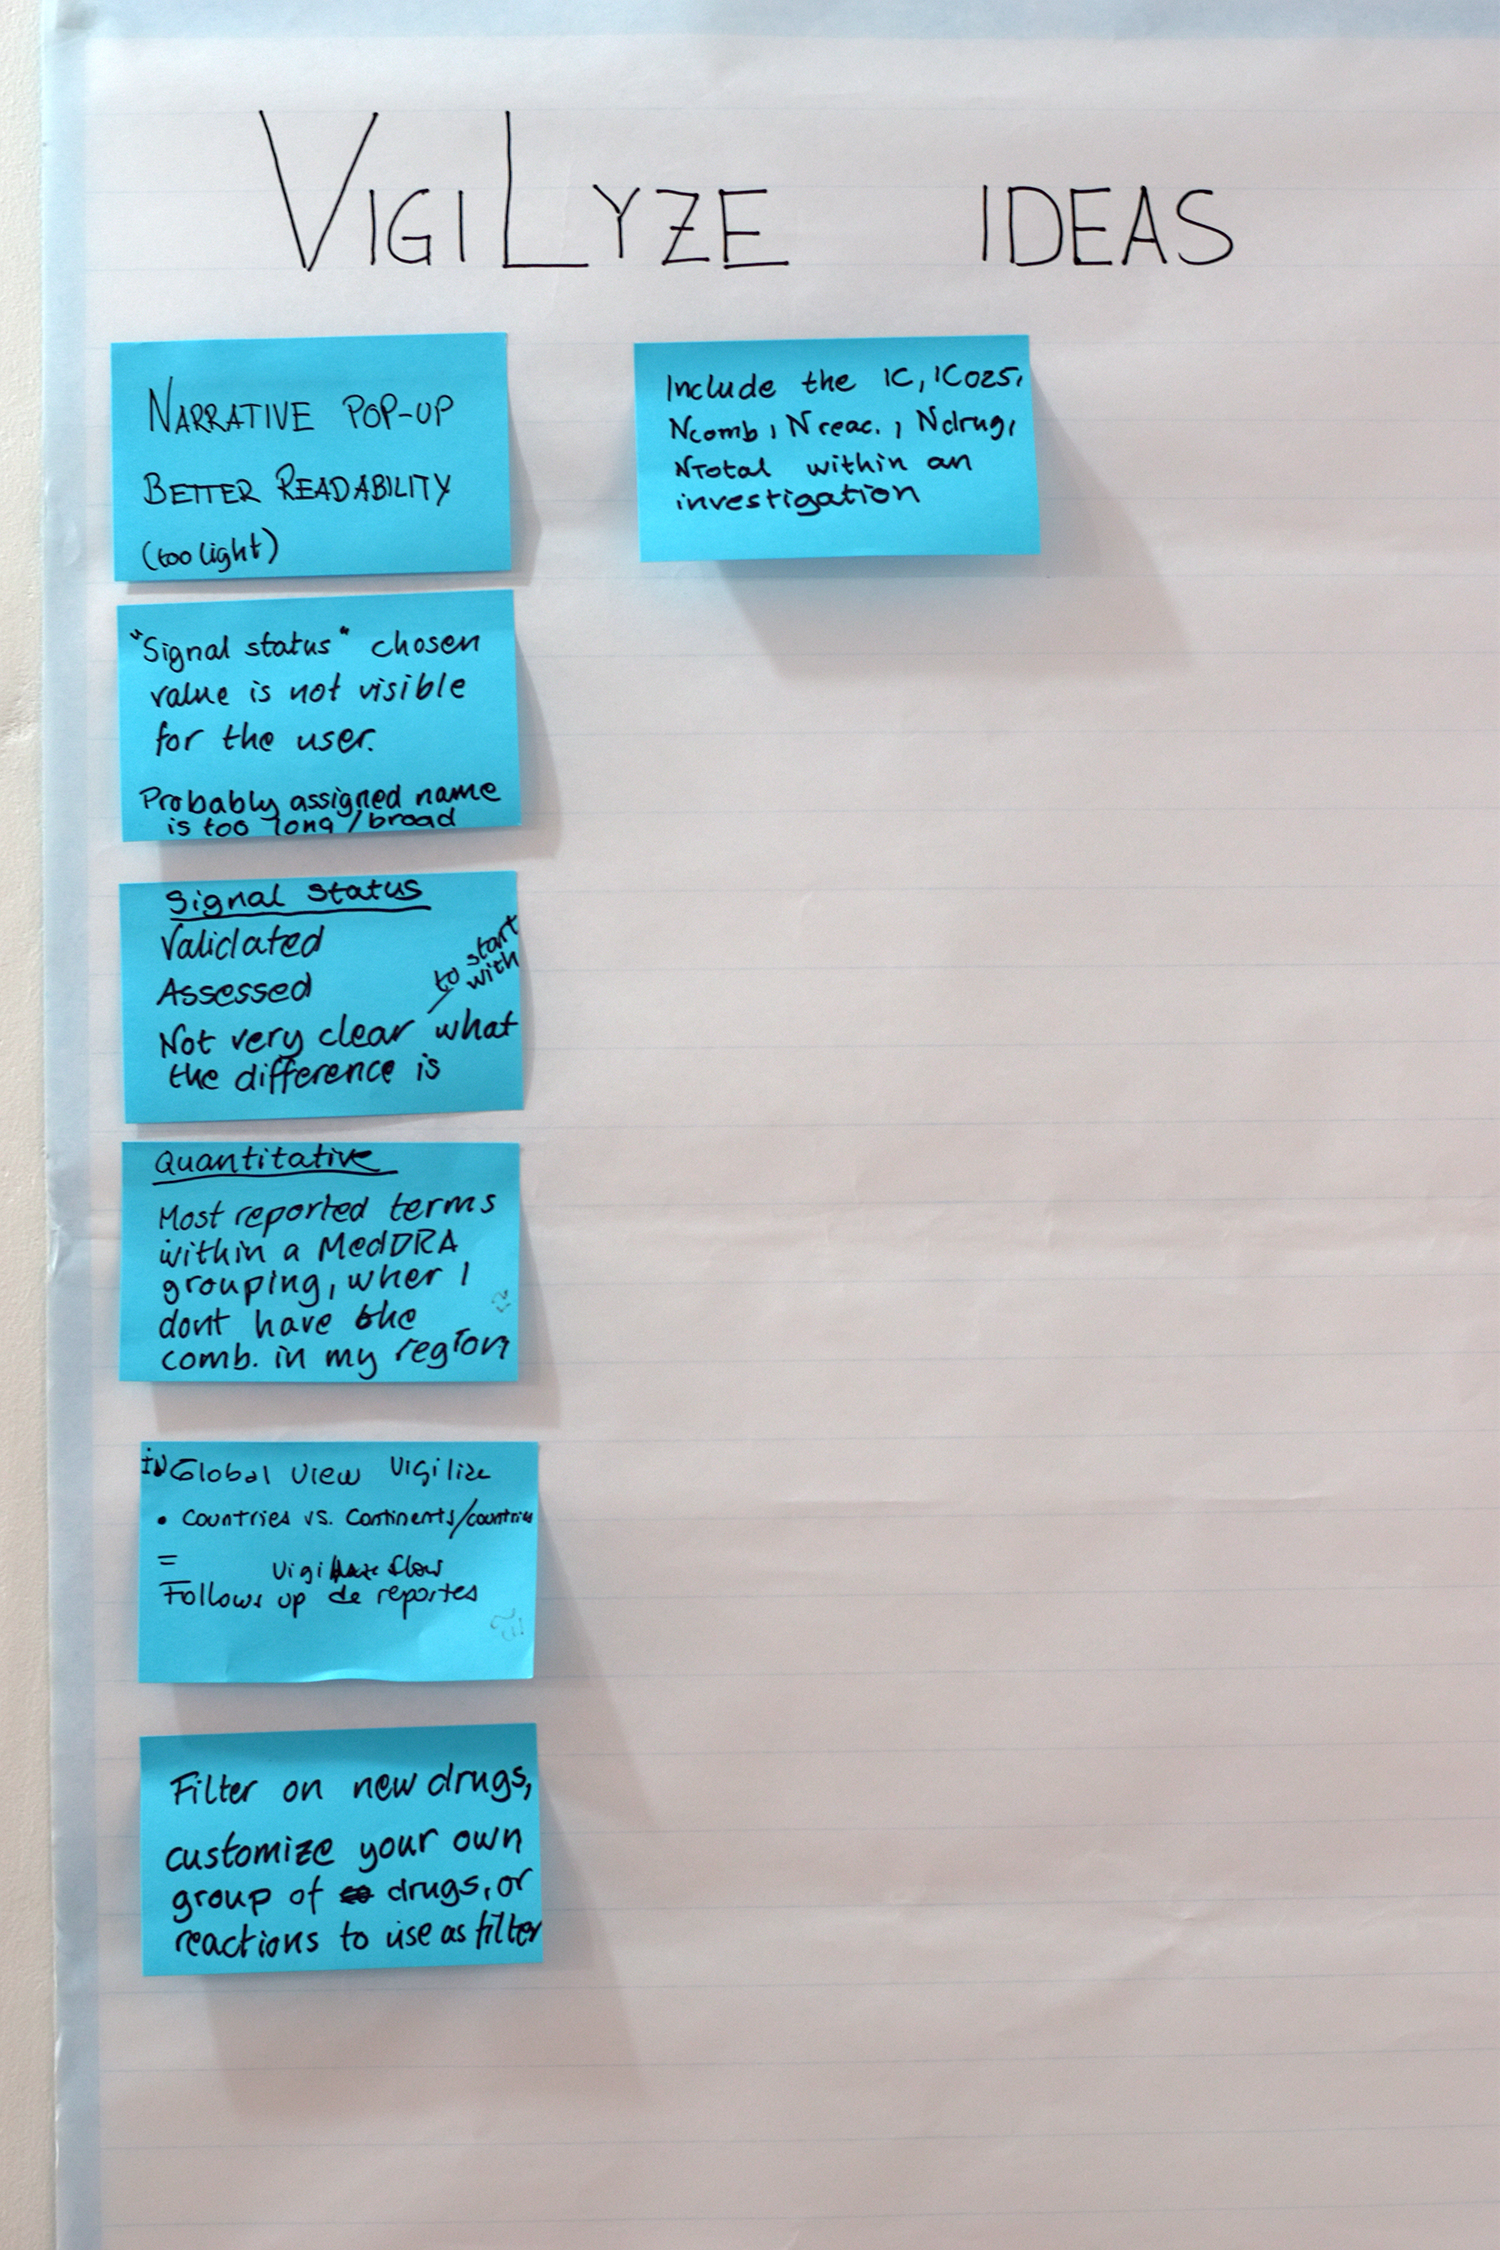 VIGILYZE IDEAS
NARRATIVE POP-UP
BETTER READABILITY
(too light)
"Signal status" chosen
value is not visible
for the user.
Probably assigned name
is too long/broad
Signal Status
Validated
Assessed
to start
with
Not very clear what
the difference is
Quantitative
Most reported terms
within a MedDRA
grouping, wher I
dont have the
comb. in my region
iN Global view Vigilize
• Countries vs. Continents/countries
=
Vigi flow
Follows up de reportes
Filter on new drugs,
customize your own
group of drugs, or
reactions to use as filter
Include the IC, IC025,
Ncomb, Nreac., Ndrug,
NTotal within an
investigation